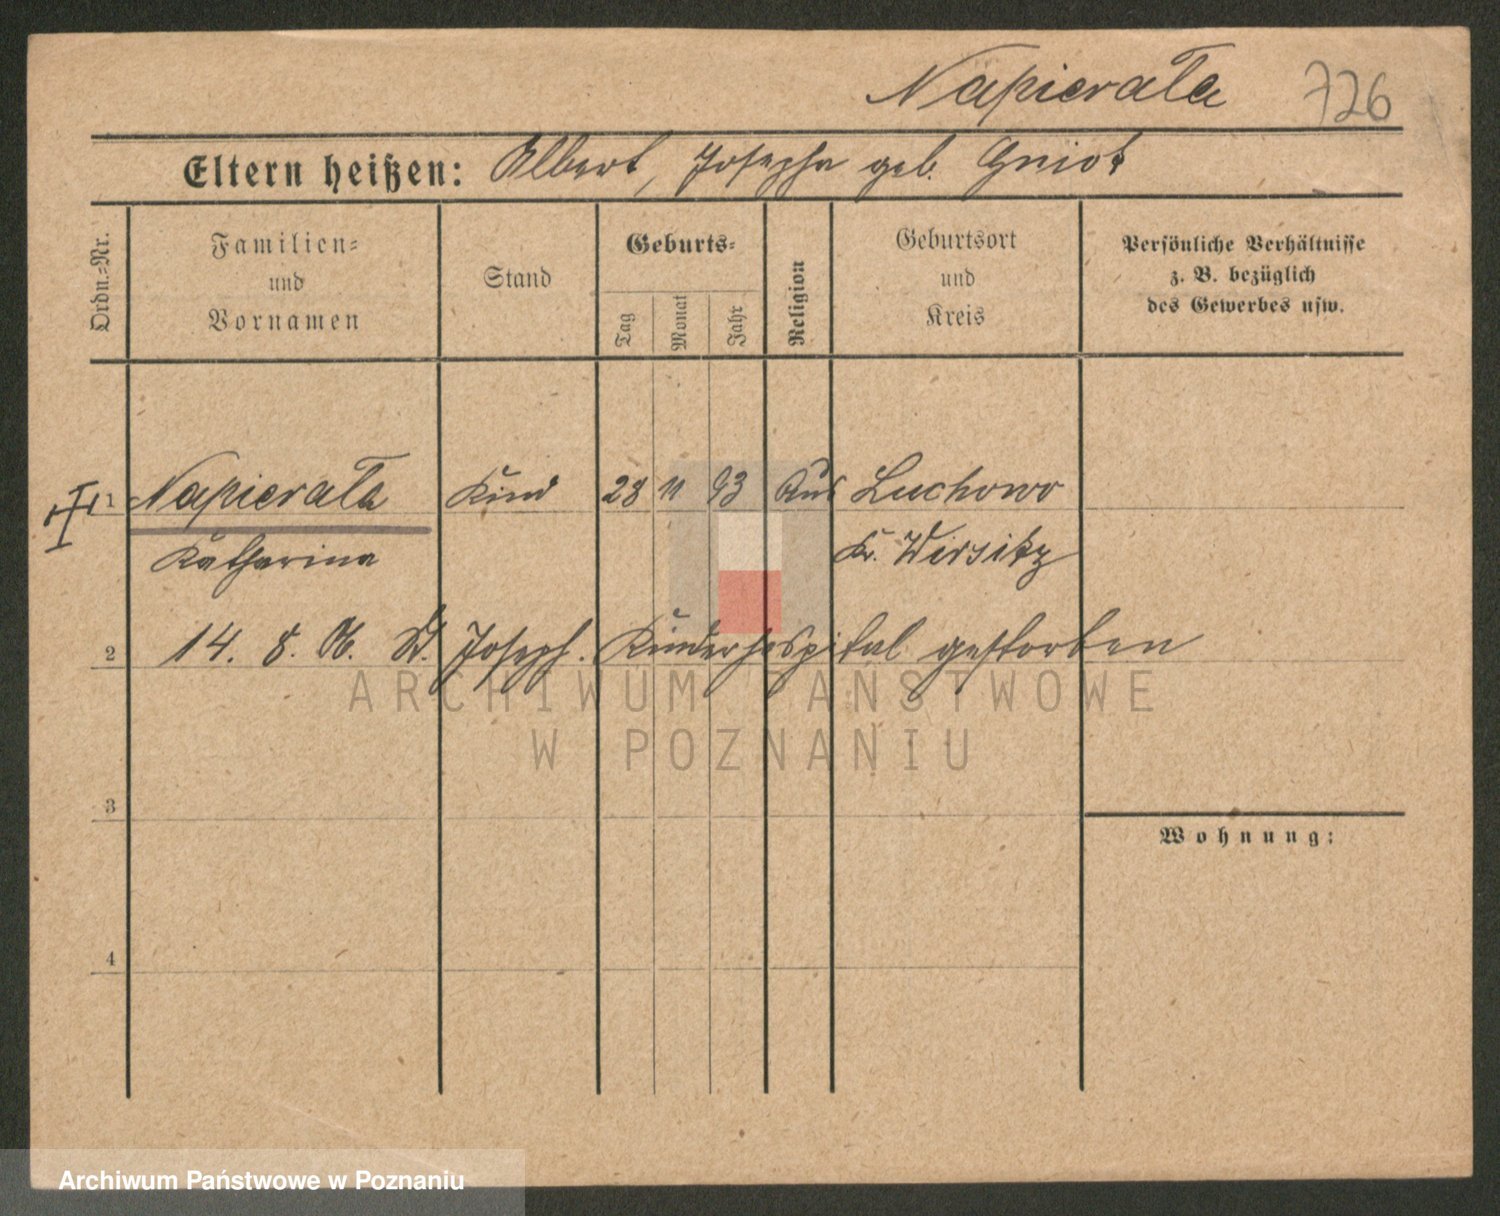 Napierała
726
Eltern heißen: Albert, Josepha geb. Gniot
Ordn.-Nr.
Familien-
und
Vornamen
Stand
Geburts-
Tag
Monat
Jahr
Religion
Geburtsort
und
Kreis
Persönliche Verhältnisse
z. B. bezüglich
des Gewerbes usw.
1 Napierała Kind 28 11 93 Luchowo
Katharina Kr. Wirsitz
2 14. 8. 06. St. Joseph. Kinderhospital gestorben
ARCHIWUM PAŃSTWOWE
W POZNANIU
3
Wohnung:
4
Archiwum Państwowe w Poznaniu